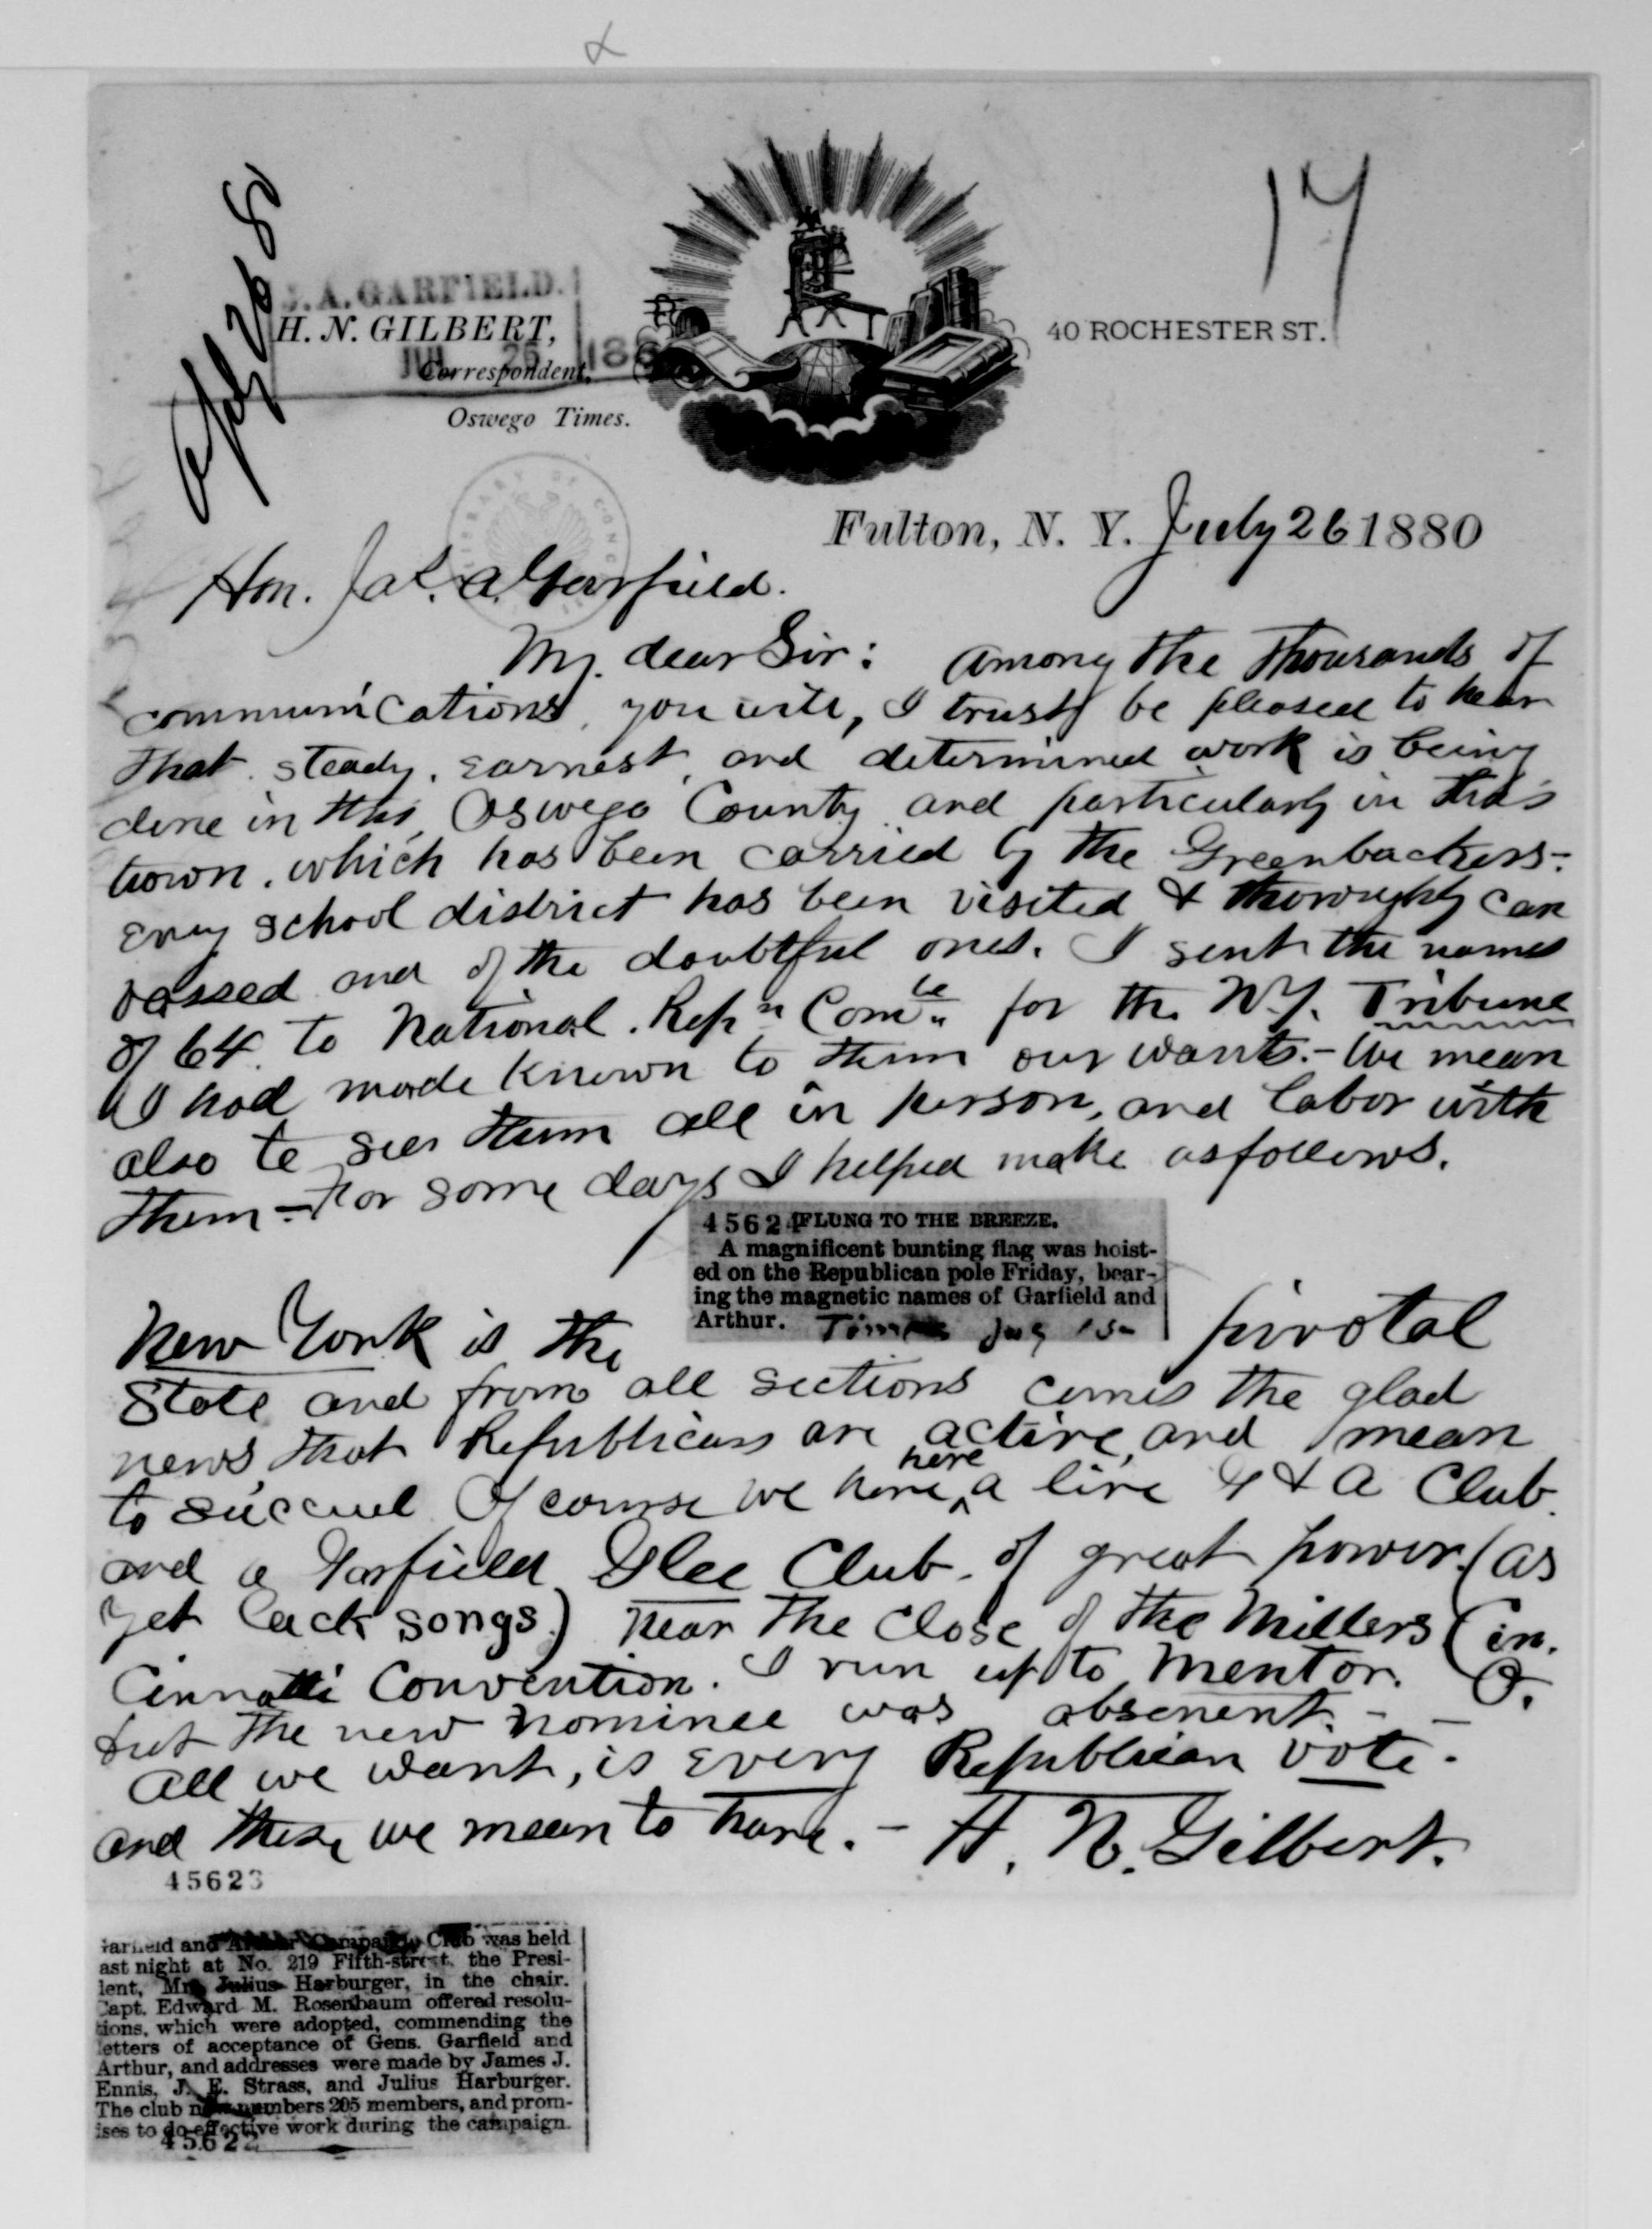 17
J. A. GARFIELD.
H. N. GILBERT,
40 ROCHESTER ST.
JUL 26 188
Correspondent,
Oswego Times.
LIBRARY OF CONGRESS
Fulton, N. Y. July 26 1880
Hon. Jas. A. Garfield.
My dear Sir: Among the thousands of
communications, you will, I trust, be pleased to hear
that steady, earnest, and determined work is being
done in this Oswego County and particularly in this
town, which has been carried by the Greenbackers-
Every school district has been visited & thoroughly can
vassed and of the doubtful ones. I sent the names
of 64 to National Repn Comte for the N.Y. Tribune
I had made known to them our wants.- We mean
also to see them all in person, and labor with
them - For some days I helped make as follows.
45624 FLUNG TO THE BREEZE.
A magnificent bunting flag was hoist-
ed on the Republican pole Friday, bear-
ing the magnetic names of Garfield and
Arthur. Times
New York is the pivotal
State and from all sections comes the glad
news that Republicans are active, and mean
to succeed Of course we have here a live G & A Club
and a Garfield Glee Club of great power. (as
yet lack songs.) Near the close of the Millers (in.
Cinnatti Convention. I run up to Mentor. O.
but the new nominee was absenent. - -
All we want, is every Republican vote.
and these we mean to have. - H. N. Gilbert.
45623
Garfield and Arthur Campaign Club was held
ast night at No. 219 Fifth-street, the Presi-
dent, Mr. Julius Harburger, in the chair.
Capt. Edward M. Rosenbaum offered resolu-
tions, which were adopted, commending the
letters of acceptance of Gens. Garfield and
Arthur, and addresses were made by James J.
Ennis, J. E. Strass, and Julius Harburger.
The club now numbers 205 members, and prom-
ises to do effective work during the campaign.
45622